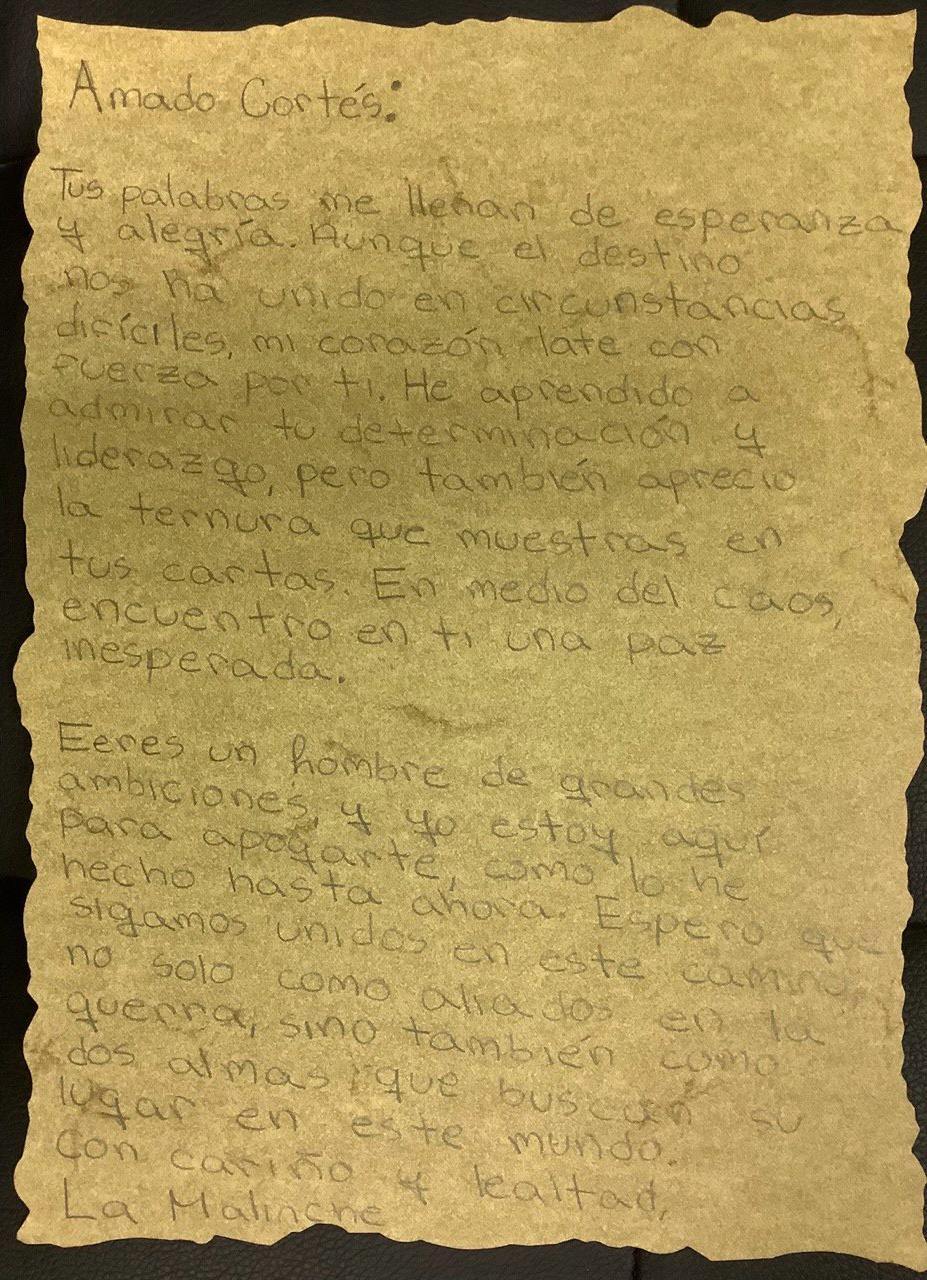 Amado Cortés:
Tus palabras me llenan de esperanza
y alegría. Aunque el destino
nos ha unido en circunstancias
difíciles, mi corazón late con
fuerza por ti. He aprendido a
admirar tu determinación y
liderazgo, pero también aprecio
la ternura que muestras en
tus cartas. En medio del caos,
encuentro en ti una paz
inesperada.
Eeres un hombre de grandes
ambiciones, y yo estoy aquí
para apoyarte, como lo he
hecho hasta ahora. Espero que
sigamos unidos en este camino,
no solo como aliados en la
guerra, sino también como
dos almas que buscan su
lugar en este mundo.
Con cariño y lealtad,
La Malinche